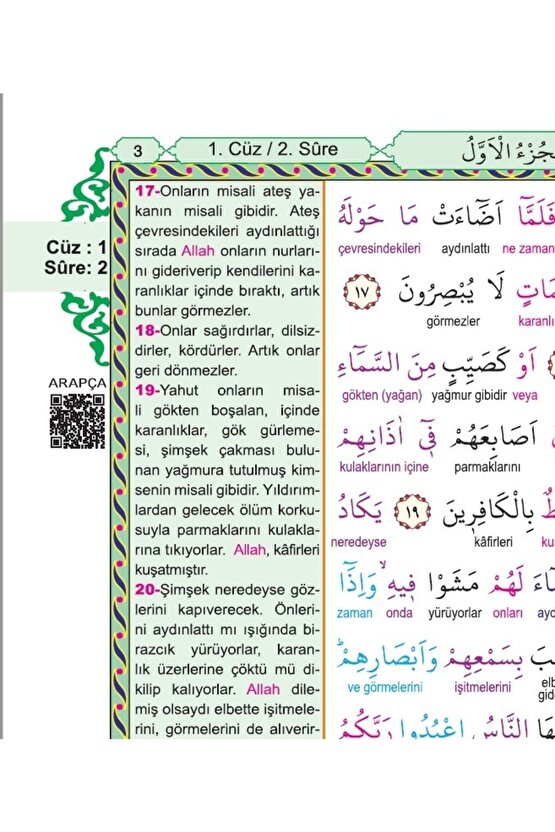 3
1. Cüz / 2. Sûre
اَلْجُزْءُ الْاَوَّلُ
Cüz : 1
Sûre: 2
ARAPÇA
17-Onların misali ateş ya-
kanın misali gibidir. Ateş
çevresindekileri aydınlattığı
sırada Allah onların nurları-
nı gideriverip kendilerini ka-
ranlıklar içinde bıraktı, artık
bunlar görmezler.
18-Onlar sağırdırlar, dilsiz-
dirler, kördürler. Artık onlar
geri dönmezler.
19-Yahut onların misa-
li gökten boşalan, içinde
karanlıklar, gök gürleme-
si, şimşek çakması bulu-
nan yağmura tutulmuş kim-
senin misali gibidir. Yıldırım-
lardan gelecek ölüm korku-
suyla parmaklarını kulakla-
rına tıkıyorlar. Allah, kâfirleri
kuşatmıştır.
20-Şimşek neredeyse göz-
lerini kapıverecek. Önleri-
ni aydınlattı mı ışığında bi-
razcık yürüyorlar, karan-
lık üzerlerine çöktü mü di-
kilip kalıyorlar. Allah dile-
miş olsaydı elbette işitmele-
rini, görmelerini de alıverir-
فَلَمَّٓا اَضَٓاءَتْ مَا حَوْلَهُ
çevresindekileri aydınlattı ne zaman
لَا يُبْصِرُونَ ﴿١٧﴾
görmezler
اَوْ كَصَيِّبٍ مِنَ السَّمَٓاءِ
gökten (yağan) yağmur gibidir veya
اَصَابِعَهُمْ فٖٓي اٰذَانِهِمْ
kulaklarının içine parmaklarını
بِالْكَافِرٖينَ ﴿١٩﴾ يَكَادُ
neredeyse kâfirleri
لَهُمْ مَشَوْا فٖيهِ وَاِذَٓا
zaman onda yürüyorlar onları
بِسَمْعِهِمْ وَاَبْصَارِهِمْ
ve görmelerini işitmelerini
النَّاسُ اعْبُدُوا رَبَّكُمُ